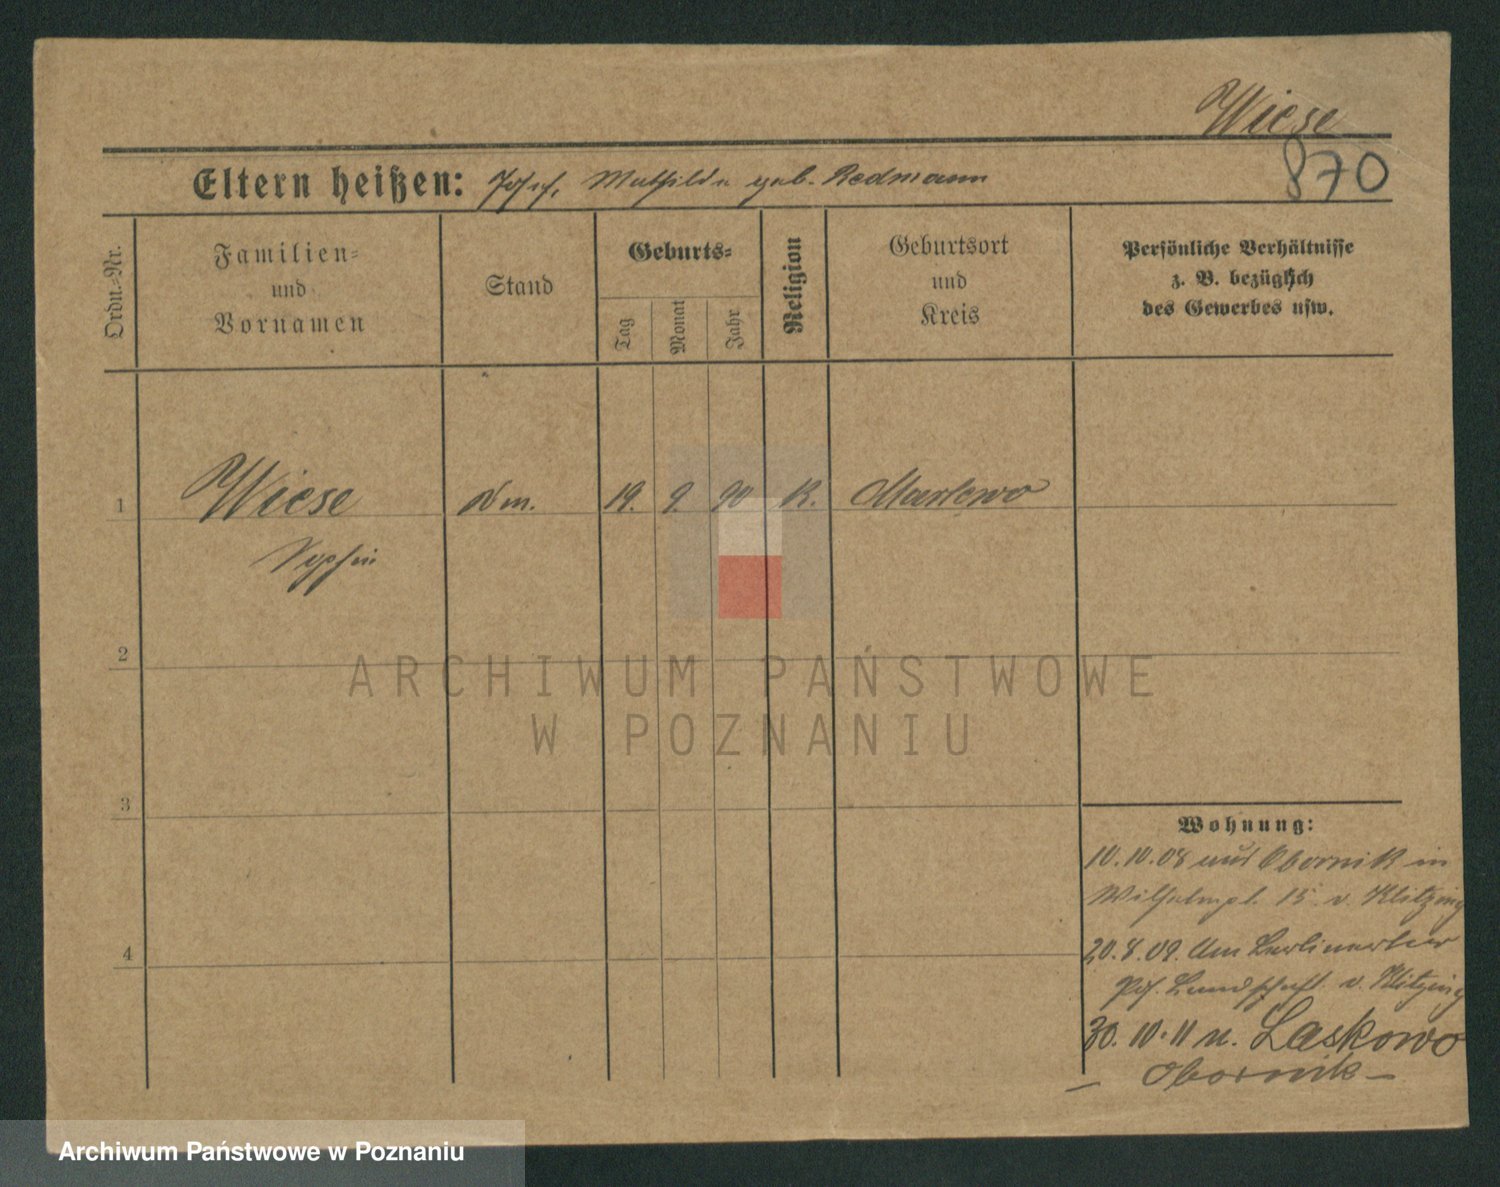 Wiese
870
Eltern heißen: Josef, Mathilde geb. Redmann
Ordn.-Nr.
Familien-
und
Vornamen
Stand
Geburts-
Tag
Monat
Jahr
Religion
Geburtsort
und
Kreis
Persönliche Verhältnisse
z. B. bezüglich
des Gewerbes usw.
1
Wiese
19. 9. 90
K.
Sophie
2
ARCHIWUM PAŃSTWOWE
W POZNANIU
3
Wohnung:
10.10.08 aus Obornik in
Wilhelmpl. 15 v. Klitzing
4
20.8.09. Am Berlinertor
Landschaft v. Klitzing
30.10.11 n. Laskowo
— Obornik —
Archiwum Państwowe w Poznaniu